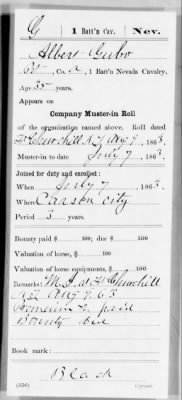 G | 1 Batt'n Cav. | Nev.
Albert Gubo
Co. A, 1 Batt'n Nevada Cavalry.
Age 35 years.
Appears on
Company Muster-in Roll
of the organization named above. Roll dated
Ft Churchill N.T. Aug 9, 1863.
Muster-in to date July 7, 1863.
Joined for duty and enrolled:
When July 7, 1863.
Where Carson City
Period 3 years.
Bounty paid $ 100; due $ 100
Valuation of horse, $ 100
Valuation of horse equipments, $ 100
Remarks: M.I. at Ft Churchill
N.T. Aug 9. 63
Premium 2 paid
Bounty due
Book mark:
Beach
Copyist.